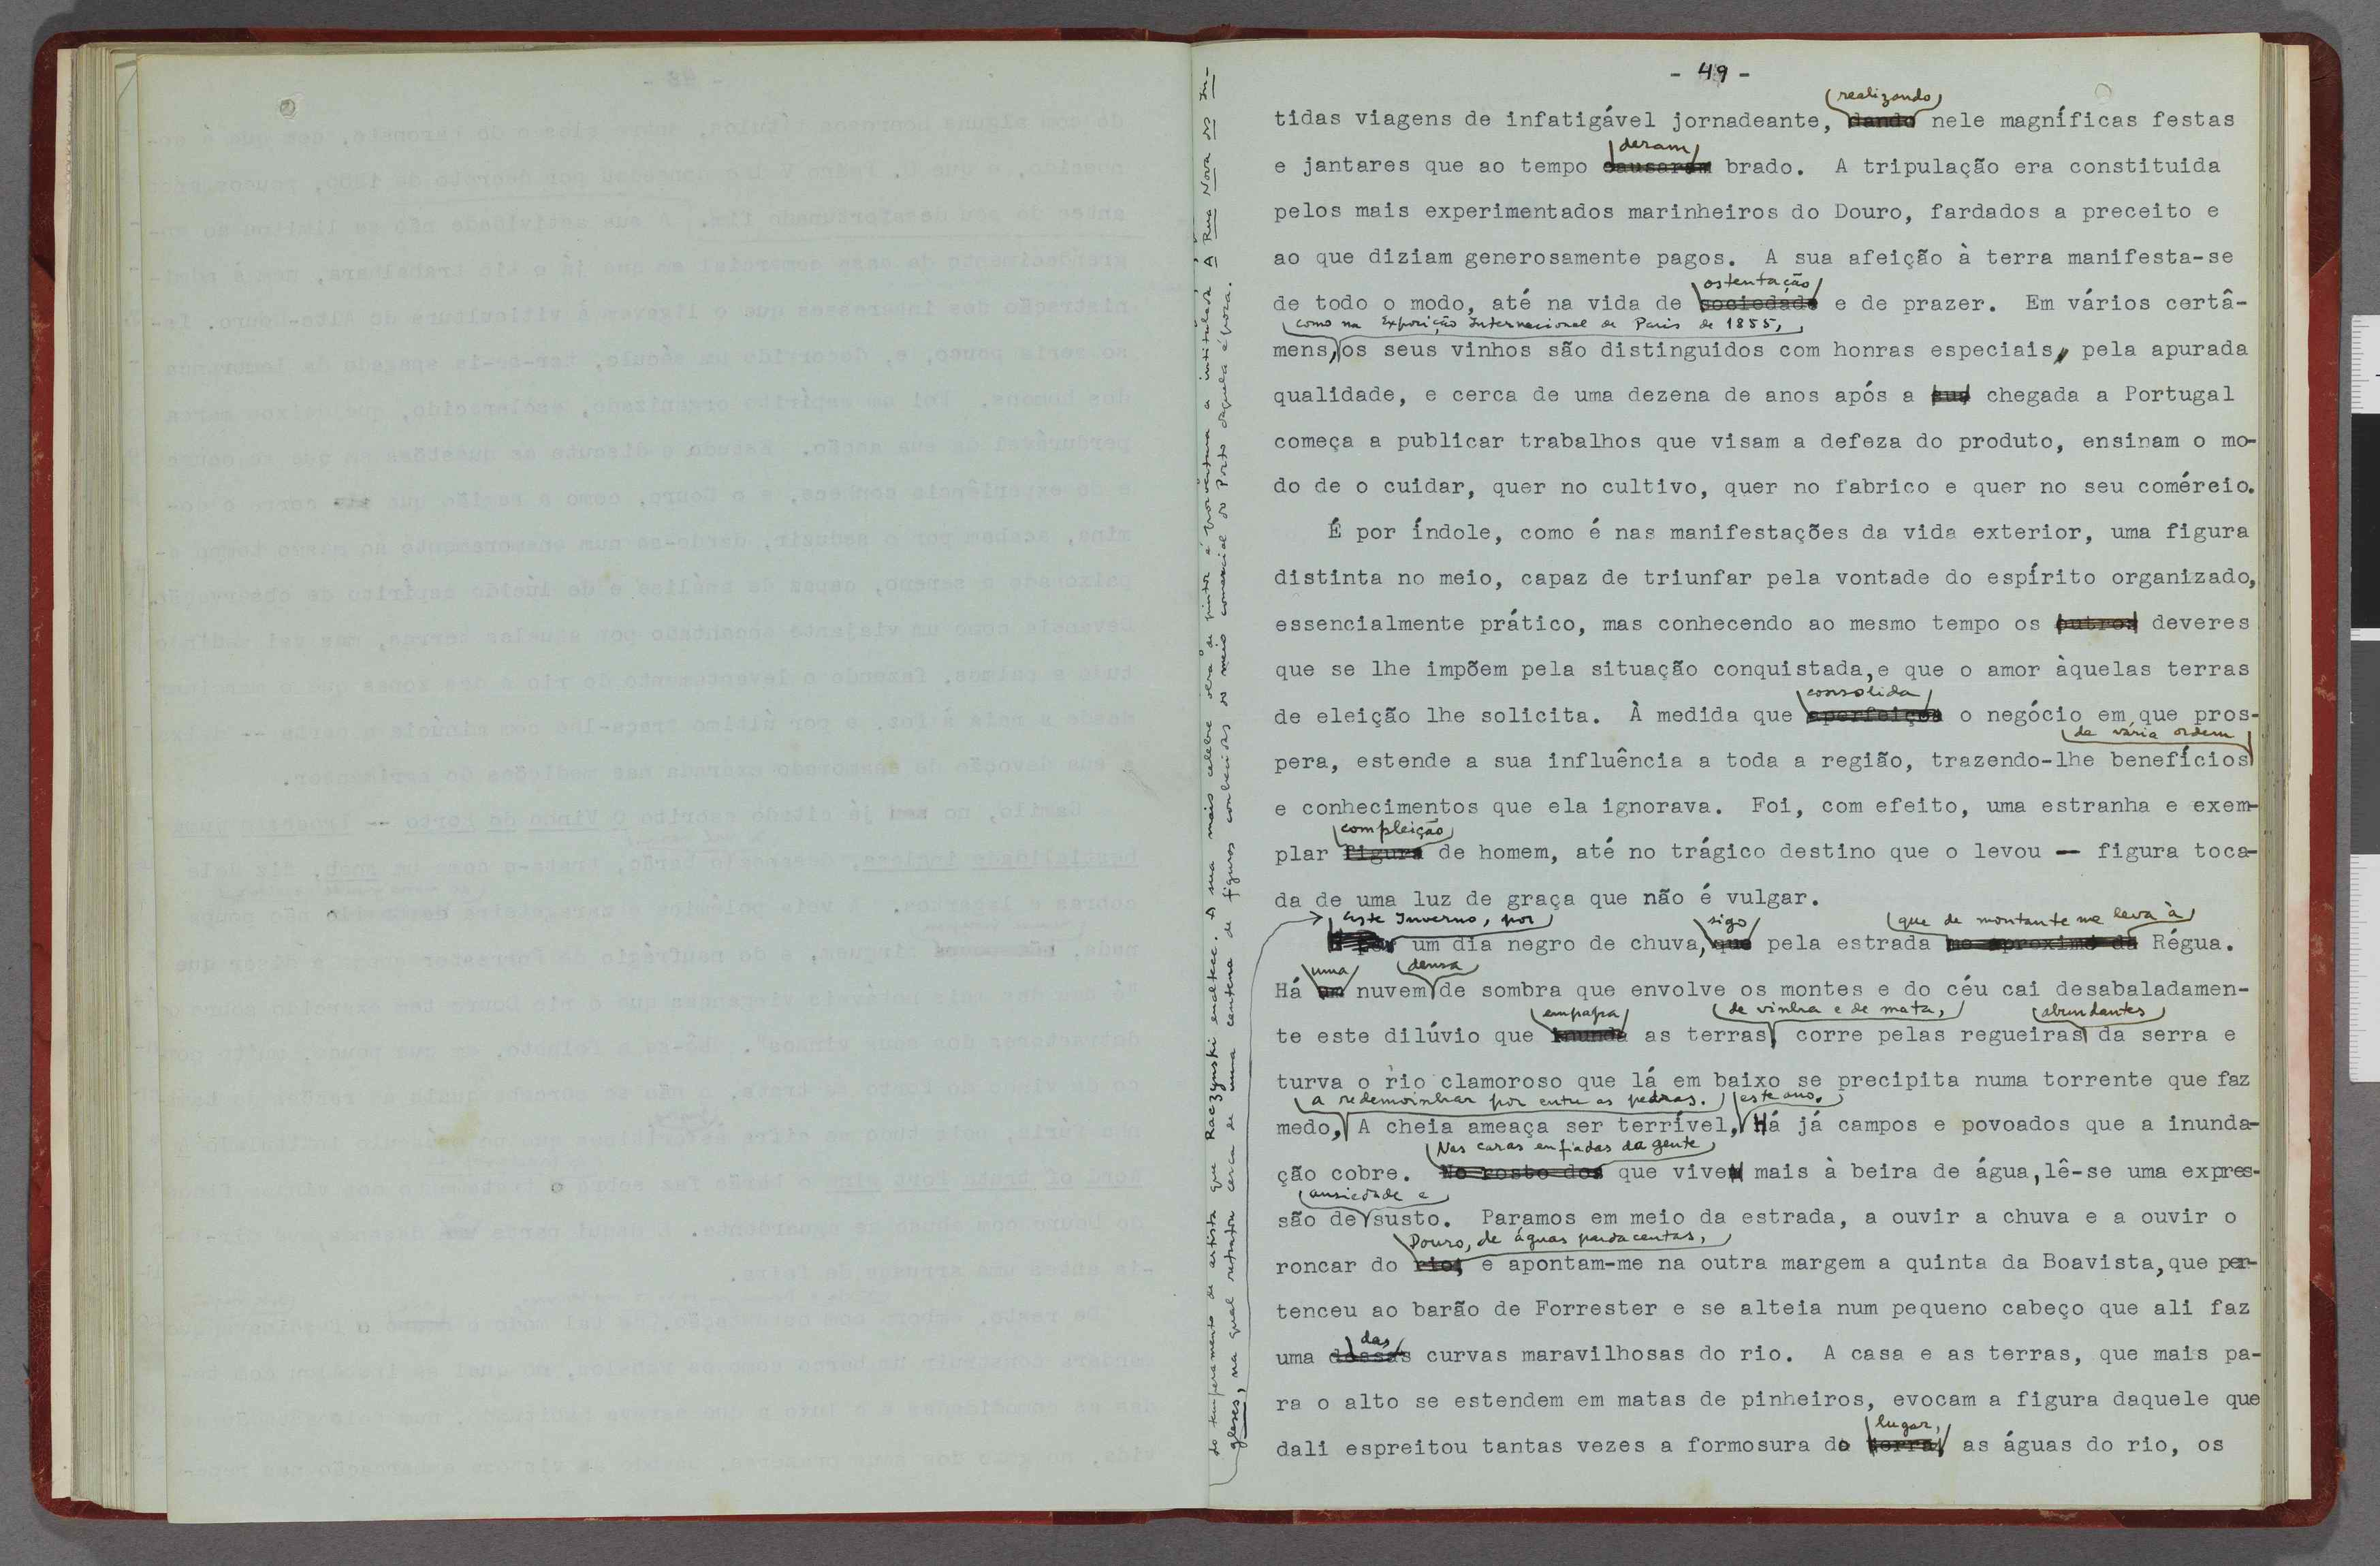 - 49 -
realizando
tidas viagens de infatigável jornadeante, dando nele magníficas festas
deram
e jantares que ao tempo causaram brado. A tripulação era constituida
pelos mais experimentados marinheiros do Douro, fardados a preceito e
ao que diziam generosamente pagos. A sua afeição à terra manifesta-se
ostentação
de todo o modo, até na vida de sociedade e de prazer. Em vários certâ-
como na Exposição Internacional de Paris de 1855,
mens, os seus vinhos são distinguidos com honras especiais, pela apurada
qualidade, e cerca de uma dezena de anos após a sua chegada a Portugal
começa a publicar trabalhos que visam a defeza do produto, ensinam o mo-
do de o cuidar, quer no cultivo, quer no fabrico e quer no seu coméreio.
É por índole, como é nas manifestações da vida exterior, uma figura
distinta no meio, capaz de triunfar pela vontade do espírito organizado,
essencialmente prático, mas conhecendo ao mesmo tempo os outros deveres
que se lhe impõem pela situação conquistada,e que o amor àquelas terras
consolida
de eleição lhe solicita. À medida que aperfeiçoa o negócio em que pros-
de vária ordem
pera, estende a sua influência a toda a região, trazendo-lhe benefícios
e conhecimentos que ela ignorava. Foi, com efeito, uma estranha e exem-
compleição
plar figura de homem, até no trágico destino que o levou — figura toca-
da de uma luz de graça que não é vulgar.
este Inverno, por sigo que de montante me leva à
um dia negro de chuva, que pela estrada me aproximo da Régua.
uma densa
Há um nuvem de sombra que envolve os montes e do céu cai desabaladamen-
empapa de vinha e de mata, abundantes
te este dilúvio que inunda as terras corre pelas regueiras da serra e
turva o rio clamoroso que lá em baixo se precipita numa torrente que faz
a redemoinhar por entre as pedras. este ano.
medo, A cheia ameaça ser terrível, Há já campos e povoados que a inunda-
Nas caras enfiadas da gente
ção cobre. No rosto dos que vivem mais à beira de água,lê-se uma expres-
ansiedade e
são de susto. Paramos em meio da estrada, a ouvir a chuva e a ouvir o
Douro, de águas pardacentas,
roncar do rio, e apontam-me na outra margem a quinta da Boavista,que per-
tenceu ao barão de Forrester e se alteia num pequeno cabeço que ali faz
das
uma dessas curvas maravilhosas do rio. A casa e as terras, que mais pa-
ra o alto se estendem em matas de pinheiros, evocam a figura daquele que
lugar,
dali espreitou tantas vezes a formosura do terra, as águas do rio, os
do temperamento de artista que Raczynski enaltece. A sua mais célebre obra de pintor é porventura a intitulada A Rua Nova dos In-
gleses, na qual retratou cerca de uma centena de figuras conhecidas do meio comercial do Porto daquela época.